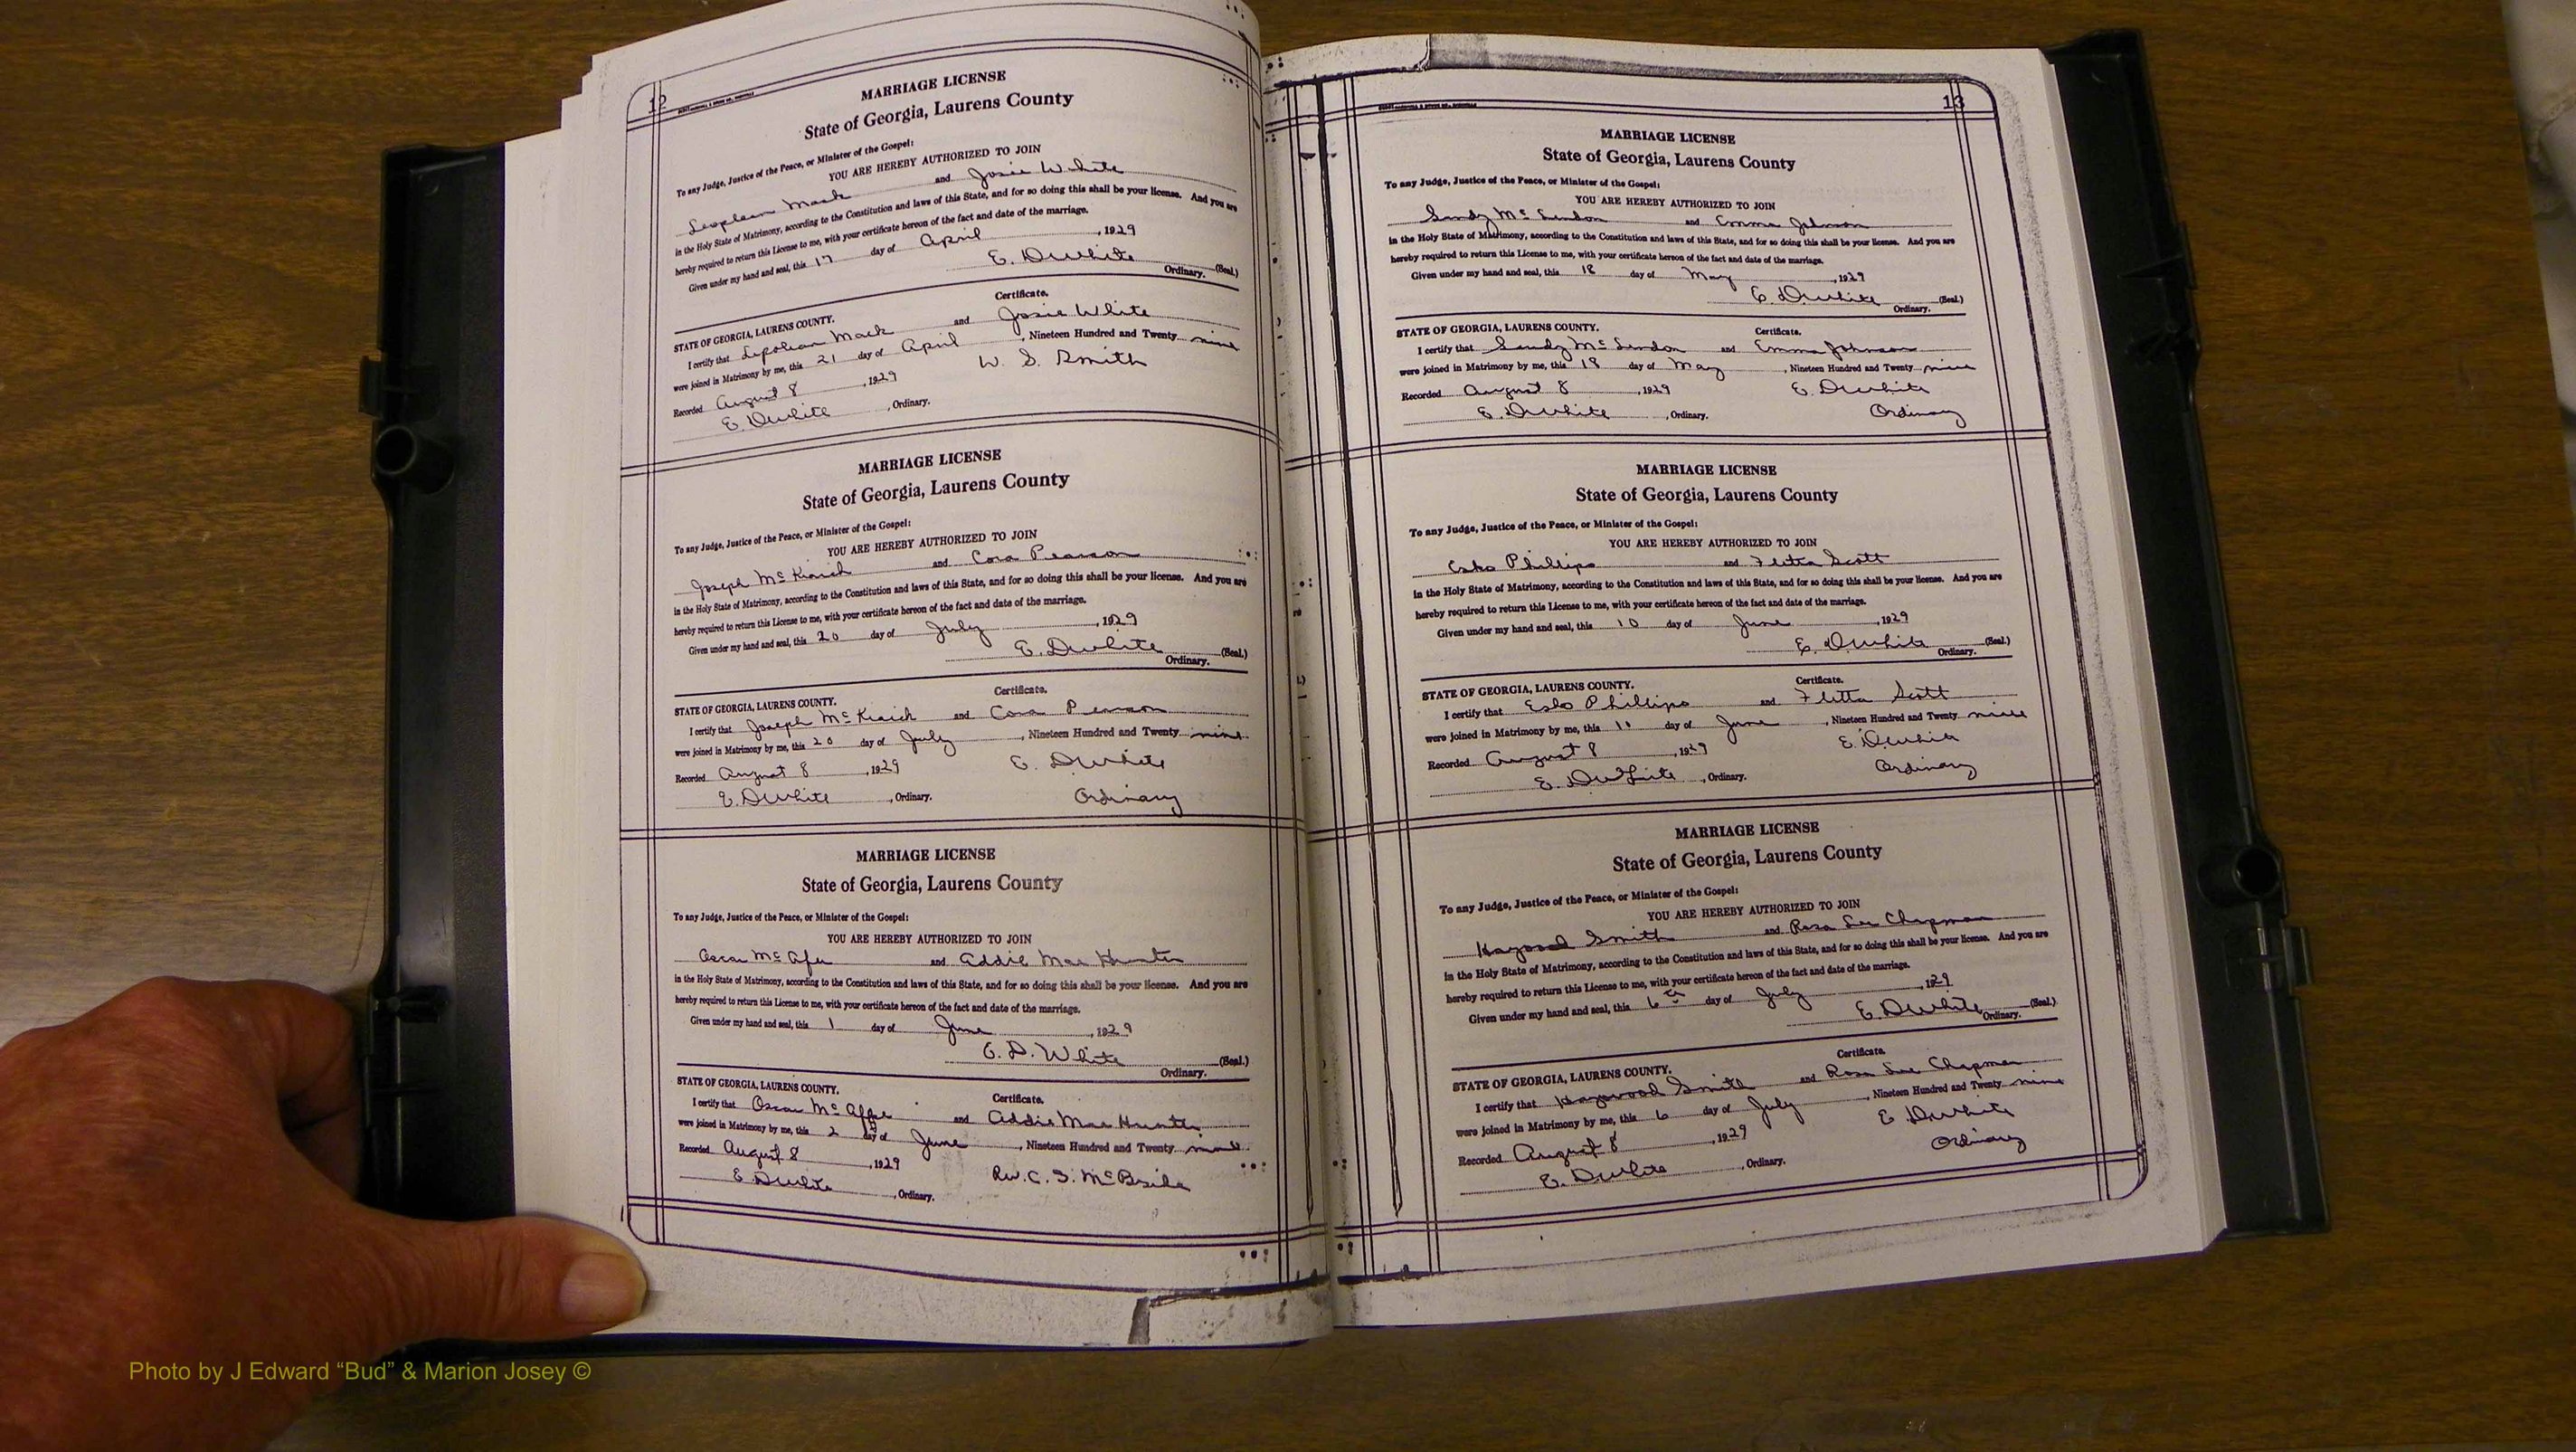 12
MARRIAGE LICENSE
State of Georgia, Laurens County
To any Judge, Justice of the Peace, or Minister of the Gospel:
YOU ARE HEREBY AUTHORIZED TO JOIN
Mack and Josie White
in the Holy State of Matrimony, according to the Constitution and laws of this State, and for so doing this shall be your license. And you are
hereby required to return this License to me, with your certificate hereon of the fact and date of the marriage.
Given under my hand and seal, this 17 day of April, 1929
E. D White (Seal.)
Ordinary.
Certificate.
STATE OF GEORGIA, LAURENS COUNTY.
I certify that Lepolean Mack and Josie White
were joined in Matrimony by me, this 21 day of April, Nineteen Hundred and Twenty nine
Recorded August 8, 1929 W. S. Smith
E. D White, Ordinary.
MARRIAGE LICENSE
State of Georgia, Laurens County
To any Judge, Justice of the Peace, or Minister of the Gospel:
YOU ARE HEREBY AUTHORIZED TO JOIN
Joseph and Cora Pearson
in the Holy State of Matrimony, according to the Constitution and laws of this State, and for so doing this shall be your license. And you are
hereby required to return this License to me, with your certificate hereon of the fact and date of the marriage.
Given under my hand and seal, this 20 day of July, 1929
E. D White (Seal.)
Ordinary.
Certificate.
STATE OF GEORGIA, LAURENS COUNTY.
I certify that Joseph and Cora
were joined in Matrimony by me, this 20 day of July, Nineteen Hundred and Twenty nine
Recorded August 8, 1929 E. D White
E. D White, Ordinary. Ordinary
MARRIAGE LICENSE
State of Georgia, Laurens County
To any Judge, Justice of the Peace, or Minister of the Gospel:
YOU ARE HEREBY AUTHORIZED TO JOIN
Oscar McAfee and Addie Mae Hunter
in the Holy State of Matrimony, according to the Constitution and laws of this State, and for so doing this shall be your license. And you are
hereby required to return this License to me, with your certificate hereon of the fact and date of the marriage.
Given under my hand and seal, this 1 day of June, 1929
E. D. White (Seal.)
Ordinary.
Certificate.
STATE OF GEORGIA, LAURENS COUNTY.
I certify that Oscar McAffee and Addie Mae Hunter
were joined in Matrimony by me, this 2 day of June, Nineteen Hundred and Twenty nine
Recorded August 8, 1929 Rev. C. S.
E D White, Ordinary.
13
MARRIAGE LICENSE
State of Georgia, Laurens County
To any Judge, Justice of the Peace, or Minister of the Gospel:
YOU ARE HEREBY AUTHORIZED TO JOIN
Sandy McLendon and Emma Johnson
in the Holy State of Matrimony, according to the Constitution and laws of this State, and for so doing this shall be your license. And you are
hereby required to return this License to me, with your certificate hereon of the fact and date of the marriage.
Given under my hand and seal, this 18 day of May, 1929
E. D White (Seal.)
Ordinary.
Certificate.
STATE OF GEORGIA, LAURENS COUNTY.
I certify that Sandy McLendon and Emma Johnson
were joined in Matrimony by me, this 18 day of May, Nineteen Hundred and Twenty nine
Recorded August 8, 1929 E. D White
E. D White, Ordinary. Ordinary
MARRIAGE LICENSE
State of Georgia, Laurens County
To any Judge, Justice of the Peace, or Minister of the Gospel:
YOU ARE HEREBY AUTHORIZED TO JOIN
Phillips and Fletta Scott
in the Holy State of Matrimony, according to the Constitution and laws of this State, and for so doing this shall be your license. And you are
hereby required to return this License to me, with your certificate hereon of the fact and date of the marriage.
Given under my hand and seal, this 10 day of June, 1929
E. D White (Seal.)
Ordinary.
Certificate.
STATE OF GEORGIA, LAURENS COUNTY.
I certify that Phillips and Fletta Scott
were joined in Matrimony by me, this day of June, Nineteen Hundred and Twenty nine
Recorded August 8, 1929 E. D White
E. D White, Ordinary. Ordinary
MARRIAGE LICENSE
State of Georgia, Laurens County
To any Judge, Justice of the Peace, or Minister of the Gospel:
YOU ARE HEREBY AUTHORIZED TO JOIN
Haywood Smith and Rosa Lee Chapman
in the Holy State of Matrimony, according to the Constitution and laws of this State, and for so doing this shall be your license. And you are
hereby required to return this License to me, with your certificate hereon of the fact and date of the marriage.
Given under my hand and seal, this 6th day of July, 1929
E. D White (Seal.)
Ordinary.
Certificate.
STATE OF GEORGIA, LAURENS COUNTY.
I certify that Haywood Smith and Rosa Lee Chapman
were joined in Matrimony by me, this 6 day of July, Nineteen Hundred and Twenty nine
Recorded August 8, 1929 E D White
E. D White, Ordinary. Ordinary
Photo by J Edward “Bud” & Marion Josey ©